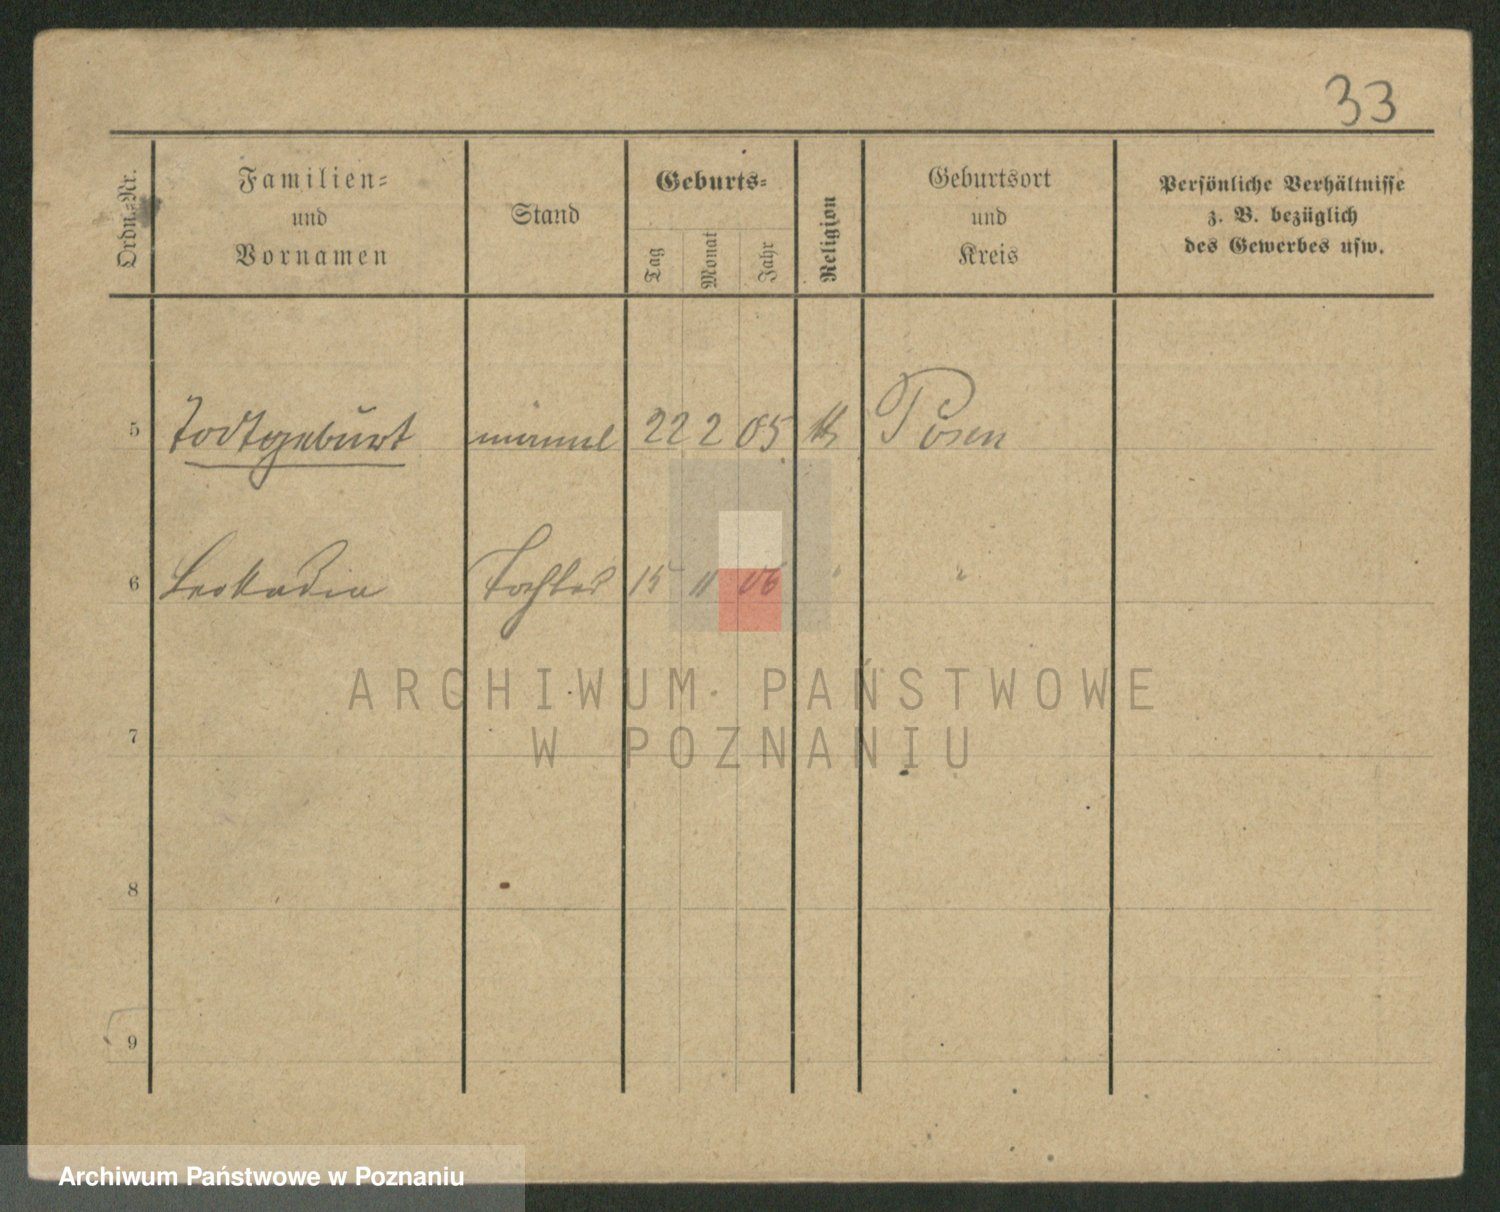 33
Ordn.-Nr.
Familien-
und
Vornamen
Stand
Geburts-
Tag
Monat
Jahr
Religion
Geburtsort
und
Kreis
Persönliche Verhältnisse
z. B. bezüglich
des Gewerbes usw.
5 Todtgeburt männl 22 2 05 k Posen
6 Leokadia Tochter 15 11 06 " "
7
8
9
ARCHIWUM PAŃSTWOWE
W POZNANIU
Archiwum Państwowe w Poznaniu